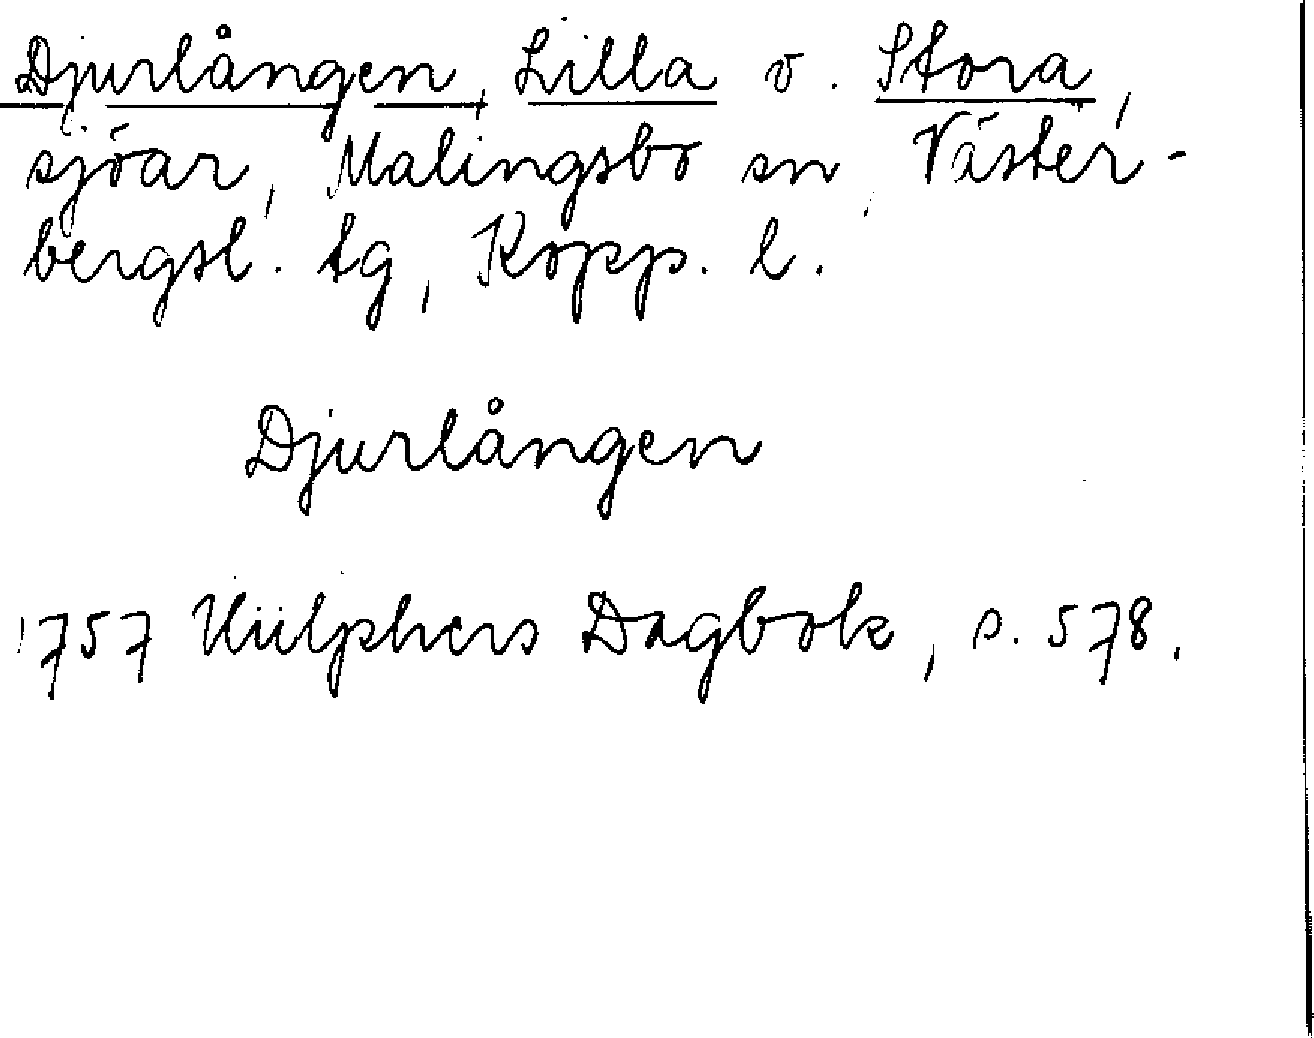 Djurlången, Lilla o. Stora,
sjöar, Malingsbo sn, Väster-
bergsl. tg, Kopp. l.
Djurlången
1757 Hülphers Dagbok, s. 578.